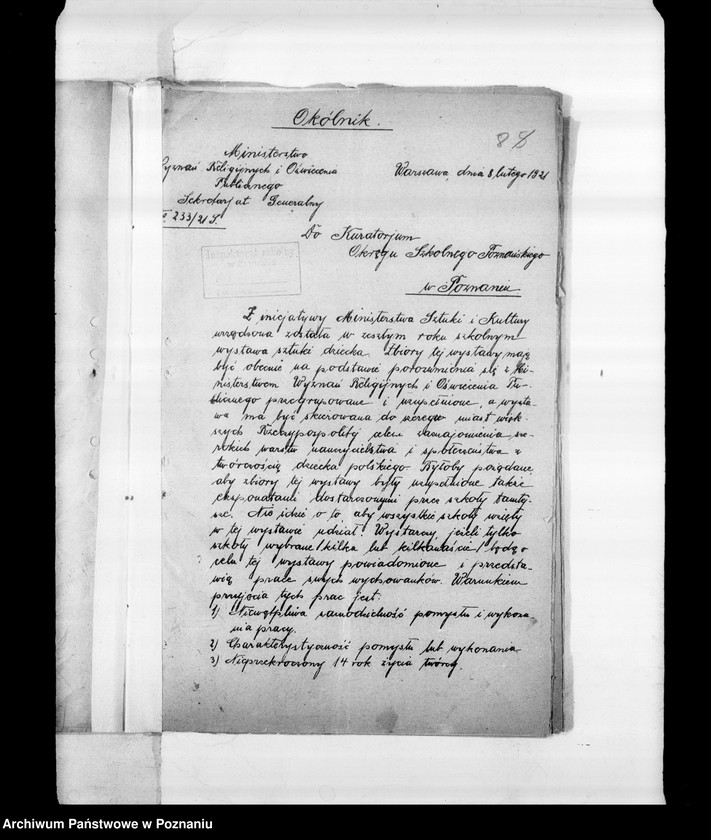 Okólnik.
8
Ministerstwo
Wyznań Religijnych i Oświecenia
Publicznego
Sekretarjat Generalny
№ 233/21 S.
Warszawa, dnia 8 lutego 1921
Do Kuratorjum
Okręgu Szkolnego Poznańskiego
w Poznaniu
Z inicjatywy Ministerstwa Sztuki i Kultury
urządzona została w zeszłym roku szkolnym
wystawa sztuki dziecka. Zbiory tej wystawy mają
być obecnie na podstawie porozumienia się z Mi-
nisterstwem Wyznań Religijnych i Oświecenia Pu-
blicznego przegrupowane i uzupełnione, a wysta-
wa ma być skierowana do szeregu miast więk-
szych Rzeczypospolitej celem zaznajomienia sze-
rokich warstw nauczycielstwa i społeczeństwa z
twórczością dziecka polskiego. Byłoby pożądane
aby zbiory tej wystawy były uzupełnione także
eksponatami dostarczonymi przez szkoły tamtej-
sze. Nie idzie o to, aby wszystkie szkoły wzięły
w tej wystawie udział. Wystarczy, jeżeli tylko
szkoły wybrane /kilka lub kilkanaście/ będą o
celu tej wystawy powiadomione i przedsta-
wią prace swych wychowanków. Warunkiem
przyjęcia tych prac jest:
1) Niewątpliwa samodzielność pomysłu i wykona
nia pracy.
2) Charakterystyczność pomysłu lub wykonania
3) Nieprzekroczony 14 rok życia twórcy.
Archiwum Państwowe w Poznaniu